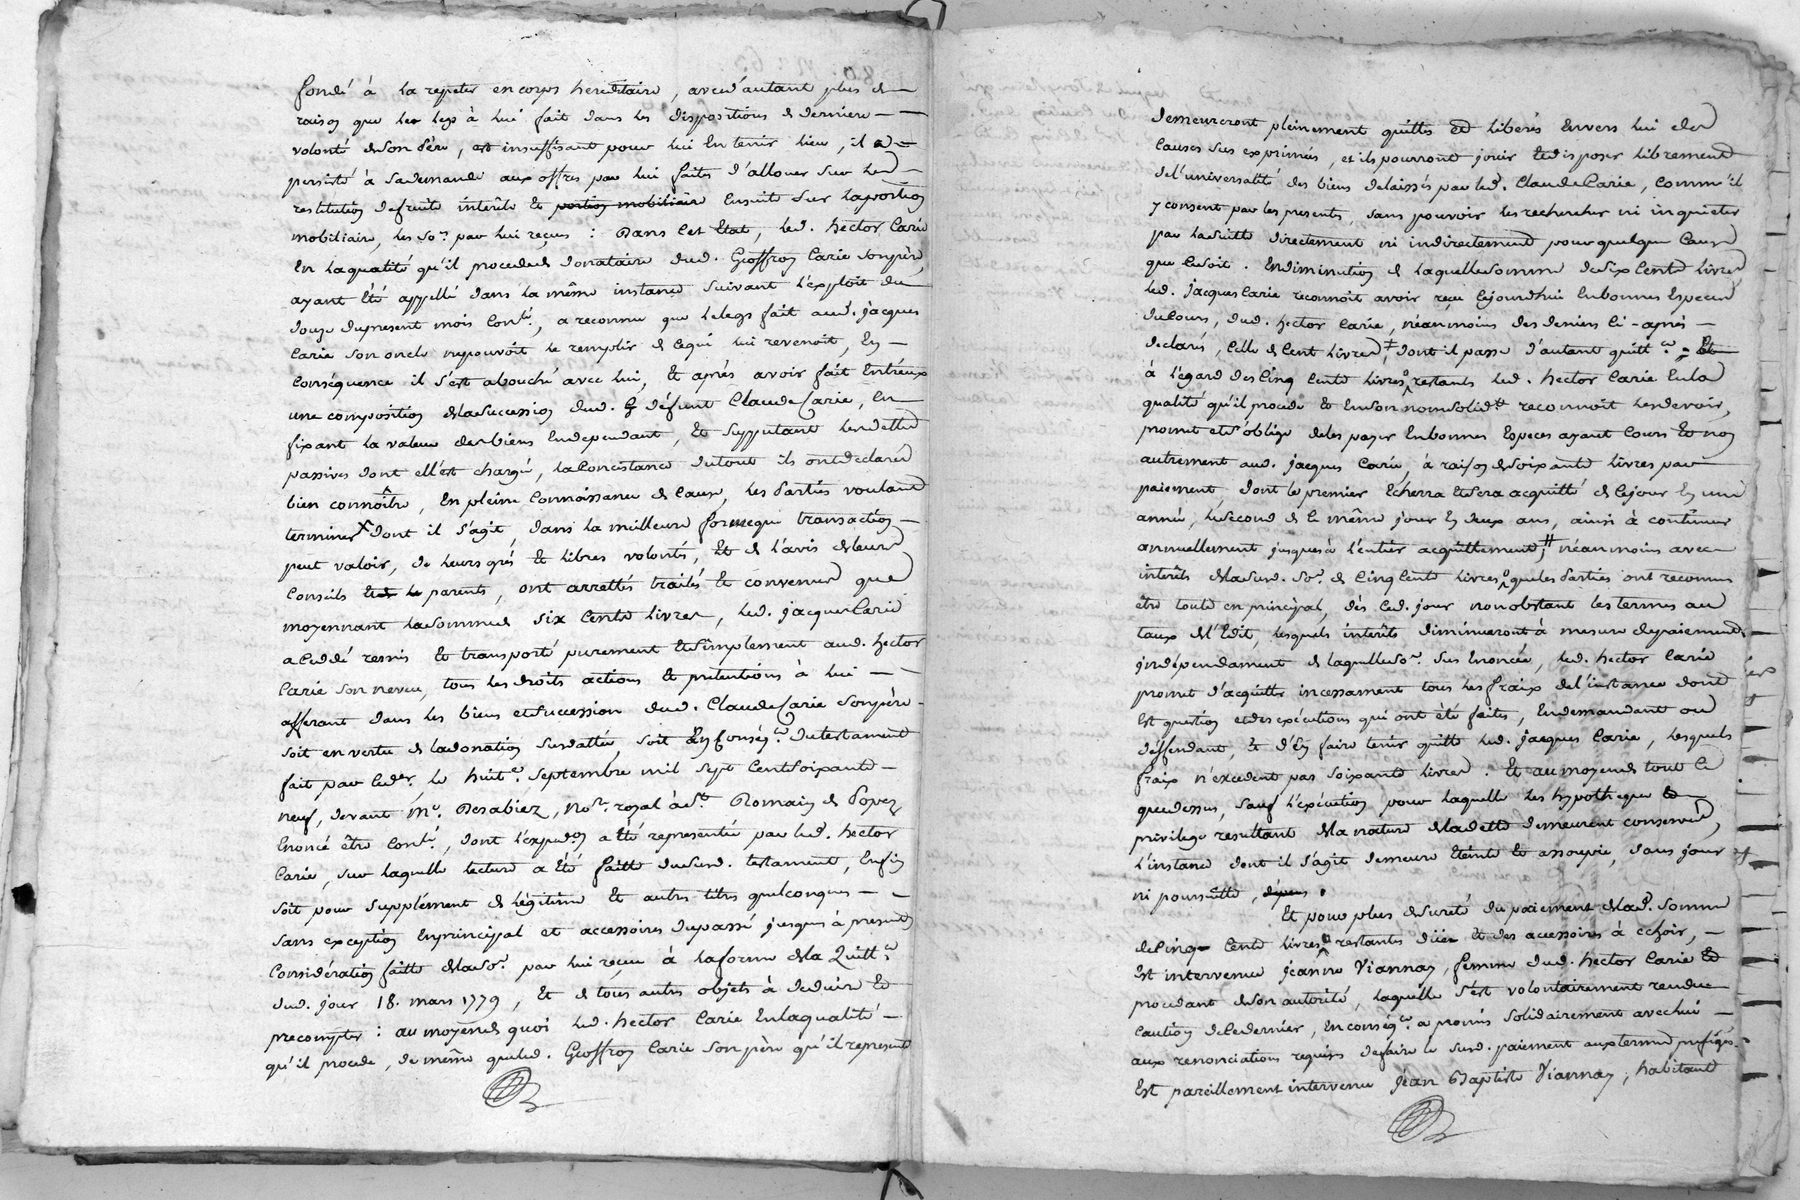 fondé à la repeter en corps hereditaire, avec d'autant plus de
raison que le legs à lui fait dans les dispositions de derniere
volonté de son Pere, est insuffisant pour lui en tenir lieu, il a
persisté à sa demande aux offres par lui faites d'allouer sur les
restitution de fruits interêts et portion mobiliaire ensuite sur la portion
mobiliaire, les so.es par lui reçues : Dans cet Etat, led. hector Carie
en la qualité qu'il procede de donataire dud. Geoffroy Carie son père,
ayant été appellé dans la même instance suivant l'exploit du
douze du present mois Con.lé, a reconnu que le legs fait aud. jacques
Carie son oncle ne pouvoit le remplir de ce qui lui revenoit, En
conséquence il s'est abouché avec lui, et après avoir fait Entr'eux
une composition de la succession dud. défunt Claude Carie, en
fixant la valeur des biens en dependant, et supputant les dettes
passives dont ell'est chargée, la Concistance du tout ils ont declarés
bien connoître, en pleine connoissance de cause, les Parties voulant
terminer x dont il s'agit, dans la meilleure forme que transaction
peut valoir, de leurs grés et libres volontés, et de l'avis de leurs
Conseils et de parents, ont arrettés traités et convenus que
moyennant la somme de six cents livres, led. jacques Carie
a cedé remis et transporté purement et simplement aud. hector
Carie son neveu, tous les droits actions et prétentions à lui
afferant dans les biens et succession dud. Claude Carie son père
soit en vertu de la donation sus dattée, soit en conséq.ce du testament
fait par led.er, le huit.e septembre mil sept cent soixante
neuf, devant M.e Desabiez, No.re royal à St. Romain de Popez
Enoncé être Cont.lé, dont l'exped.on a été representée par led. hector
Carie, sur laquelle lecture a été faitte dud. testament, Enfin
soit pour supplément de légitime et autres titres quelconques
sans exception en principal et accessoires du passé jusques à present
Considération faitte de la so.e par lui reçue à la forme de la Quitt.ce
dud. jour 18. mars 1779, et de tous autres objets à deduire et
precompter : au moyen de quoi led. hector Carie en la qualité
qu'il procede, de même que led. Geoffroy Carie son père qu'il represente
demeureront pleinement quittes et liberés envers lui des
causes sus exprimées, et ils pourront jouir et disposer librement
de l'universalité des biens delaissés par led. Claude Carie, comm'il
y consent par les presentes, sans pouvoir les rechercher ni inquieter
par la suitte directement ni indirectement pour quelque cause
que ce soit. En diminution de laquelle somme de six cents livres
led. jacques Carie reconnoit avoir reçu cejourdhui en bonnes Especes
du cours, dud. hector Carie, néanmoins des deniers ci-après
declarés, celle de cent livres, dont il passe d'autant quitt.ce Et
à l'égard des cinq cents livres restants led. hector Carie en la
qualité qu'il procede et en son nom solid.t reconnoit les devoir,
promet et s'oblige de les payer en bonnes Especes ayant cours et non
autrement aud. jacques Carie, à raison de soixante livres par
paiement, dont le premier Echerra et sera acquitté de ce jour En une
année, le second de le même jour En deux ans, ainsi à continuer
annuellement jusques à l'entier acquittement, néanmoins avec
interêts de lad. so.e de cinq cents livres que les Parties ont reconnu
être toute en principal, dès ced. jour nonobstant les termes au
taux de l'Edit, lesquels interêts diminueront à mesure de paiement
indépendament de laquelle so.e sus Enoncée, led. hector Carie
promet d'acquitter incessament tous les fraix de l'instance dont
est question et des exécutions qui ont été faites, en demandant ou
déffendant, et d'En faire tenir quitte led. jacques Carie, lesquels
fraix n'excedent pas soixante livres. Et au moyen de tout ce
que dessus, sauf l'exécution pour laquelle les hypotheque et
privilege resultant de la nature de la dette demeurent conservés,
l'instance dont il s'agit demeure Eteinte et assoupie, sans jour
ni poursuitte, dépens.
Et pour plus de sureté du paiement de lad. somme
de cinq cents livres restantes düe et des accessoires à echoir,
est intervenue jeanne Viannay, femme dud. hector Carie et
procedant de son autorité, laquelle s'est volontairement rendue
caution de ce dernier, en conséq.ce a promis solidairement avec lui
aux renonciations requises de faire le susd. paiement aux termes prefigés.
Est pareillement intervenu jean Baptiste Viannay, habitant